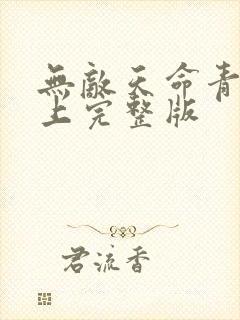 無敵天命青
上完整版
君流香